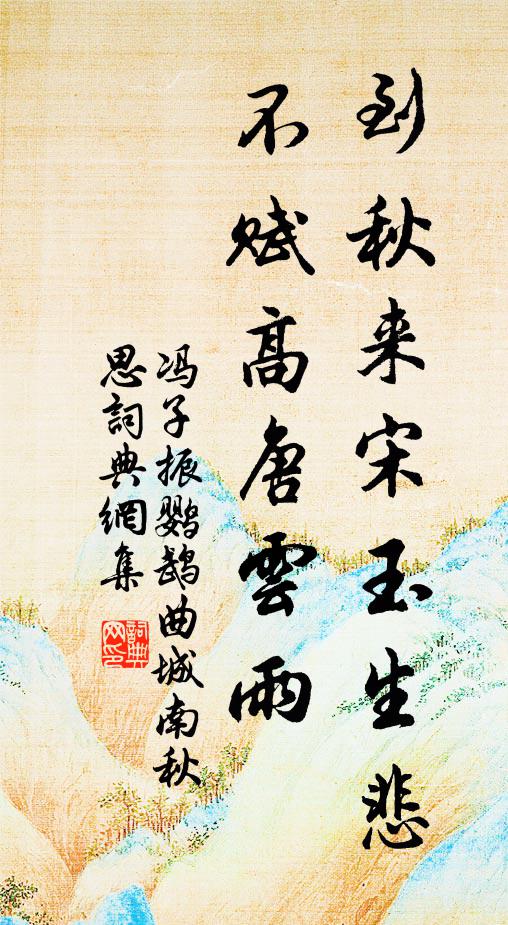 到秋来宋玉生悲
不赋高唐雲雨
冯子振鹦鹉曲城南秋
思詞典網集
詞典网印